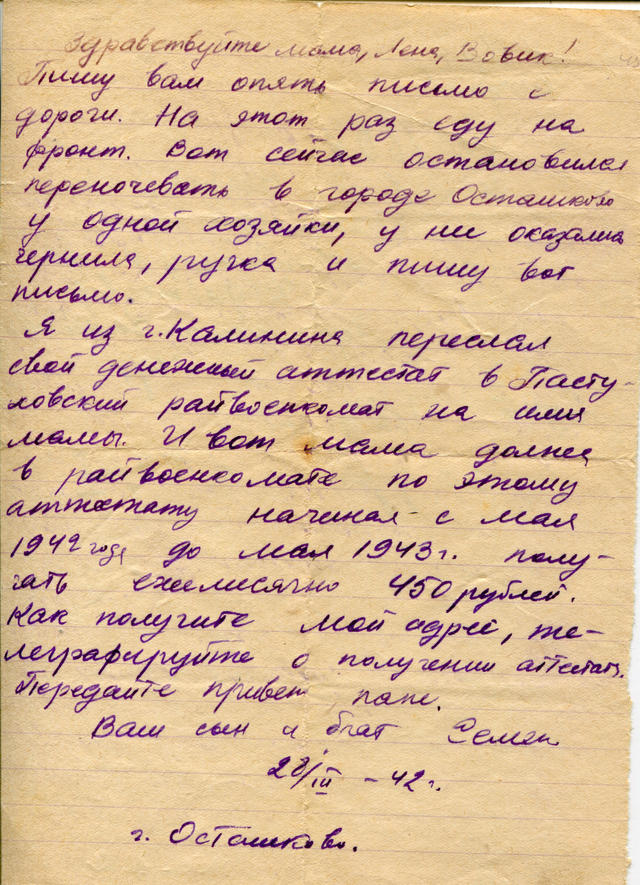 Здравствуйте мама, Лена, Вовик!
Пишу вам опять письмо с
дороги. На этот раз еду на
фронт. Вот сейчас остановился
переночевать в городе Осташково
у одной хозяйки, у ние оказались
чернила, ручка и пишу вот
письмо.
Я из г. Калинина переслал
свой денежный аттестат в Пасту-
ховский райвоенкомат на имя
мамы. И вот мама должна
в райвоенкомате по этому
аттестату начиная с мая
1942 года до мая 1943 г. полу-
чать ежемесячно 450 рублей.
Как получите мой адрес, те-
леграфируйте о получении аттестата.
Передайте привет папе.
Ваш сын и брат Семен
28/III - 42 г.
г. Осташково.